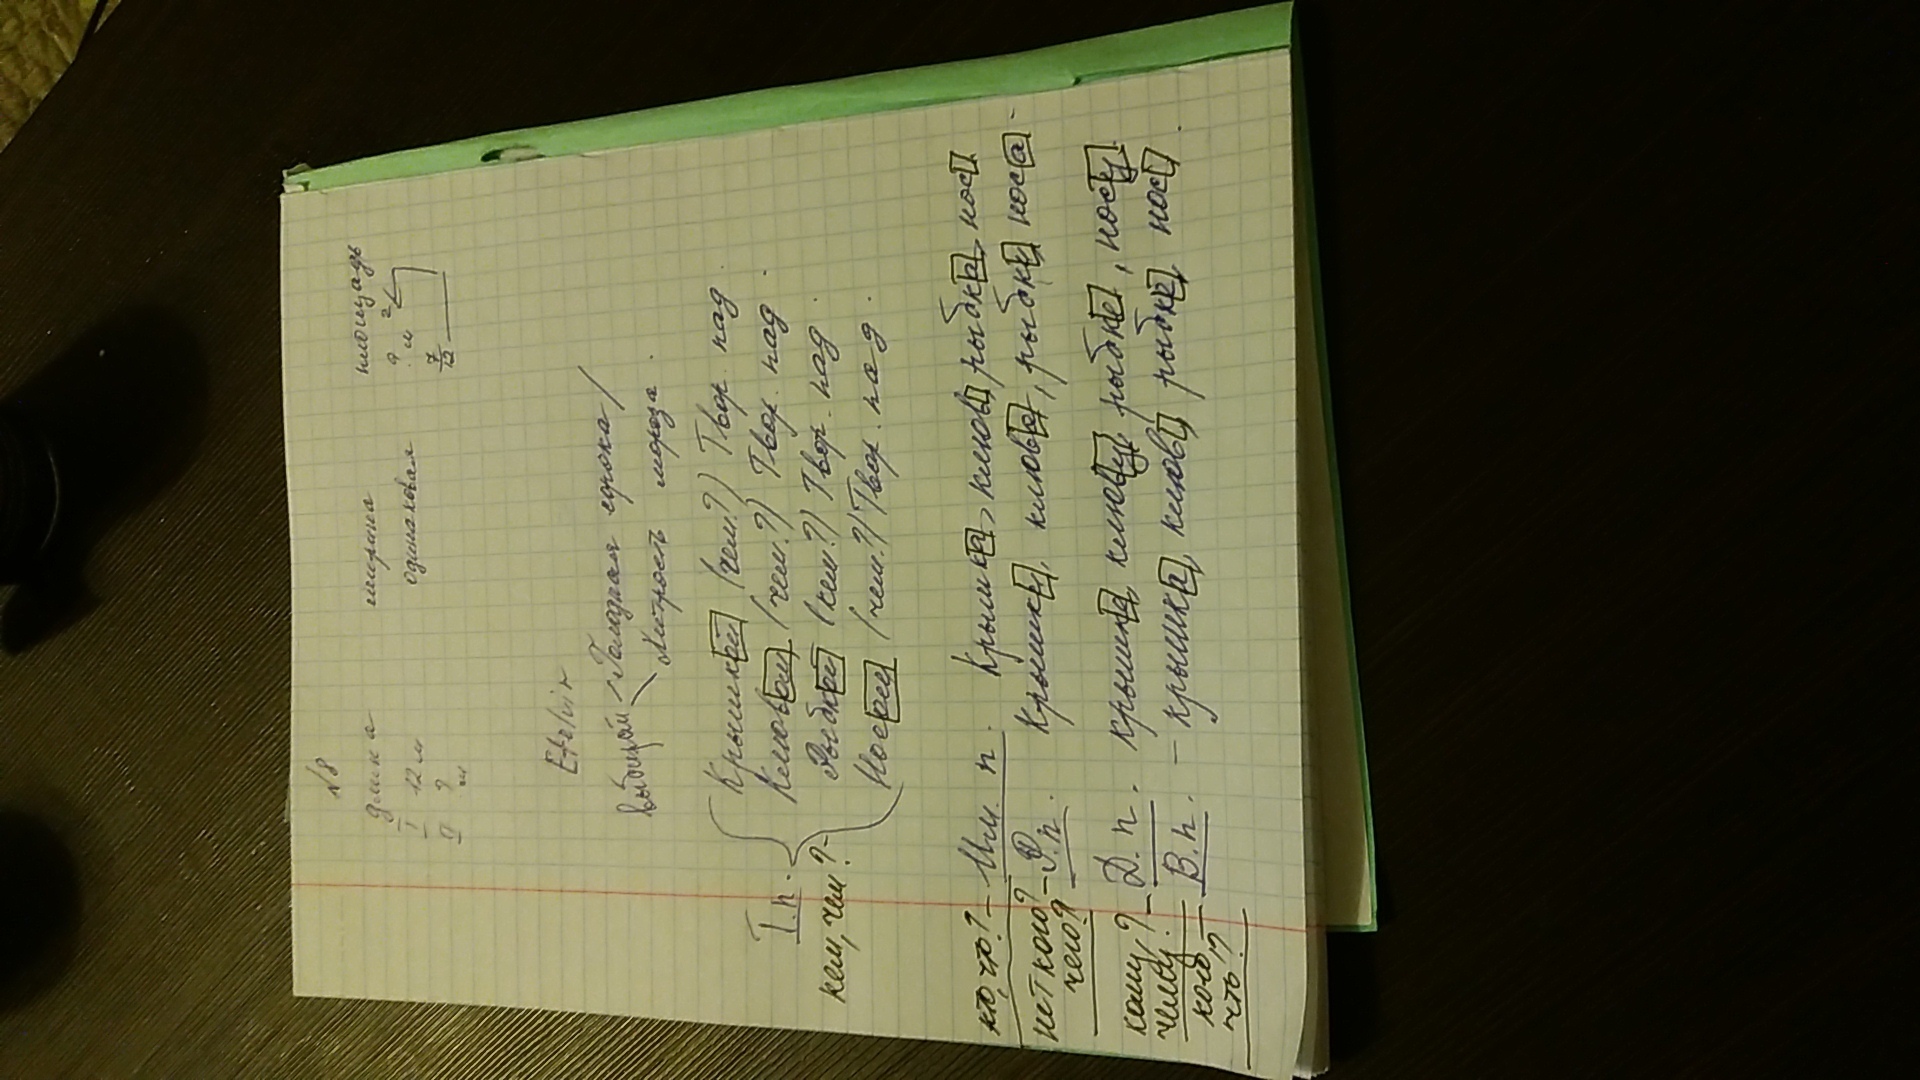 №8
длина ширина площадь
I 12 м одинаковая ? м²
II ? м 7/12
выбицай Голодная сорока/
Хитрость мороза.
Т.п. Крышкой (чем?) Твор. пад.
Клювом (чем?) Твор. пад.
кем, чем? - Рыбкой (кем?) Твор. пад.
Носом (чем?) Твор. пад.
кто, что? - Им. п. Крышка, клюв, рыбка, нос
нет кого? чего? - Р.п. Крышки, клюва, рыбки, носа.
кому? чему? - Д.п. крышке, клюву, рыбке, носу.
кого? что? - В.п. - крышка, клюв, рыбке, нос.